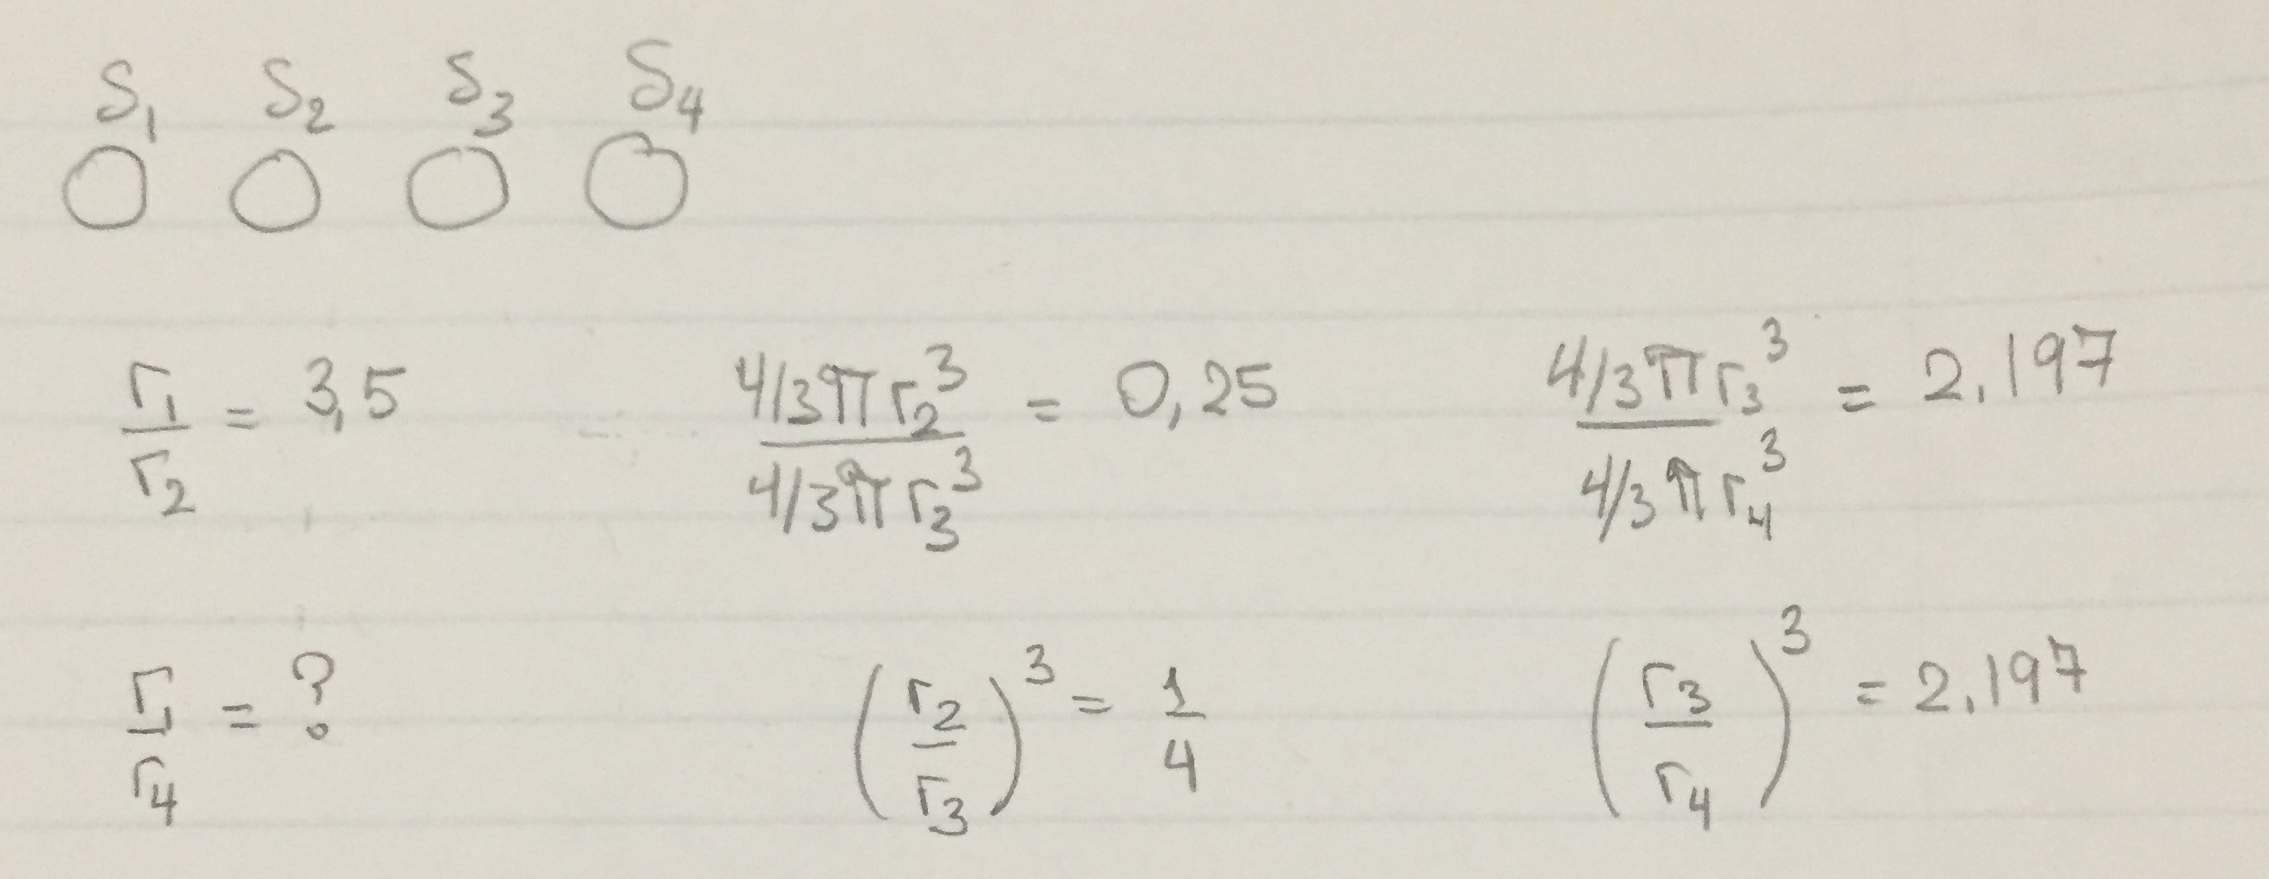 S₁ S₂ S₃ S₄
r₁/r₂ = 3,5    (4/3πr₂³)/(4/3πr₃³) = 0,25    (4/3πr₃³)/(4/3πr₄³) = 2,197
r₁/r₄ = ?    (r₂/r₃)³ = 1/4    (r₃/r₄)³ = 2,197